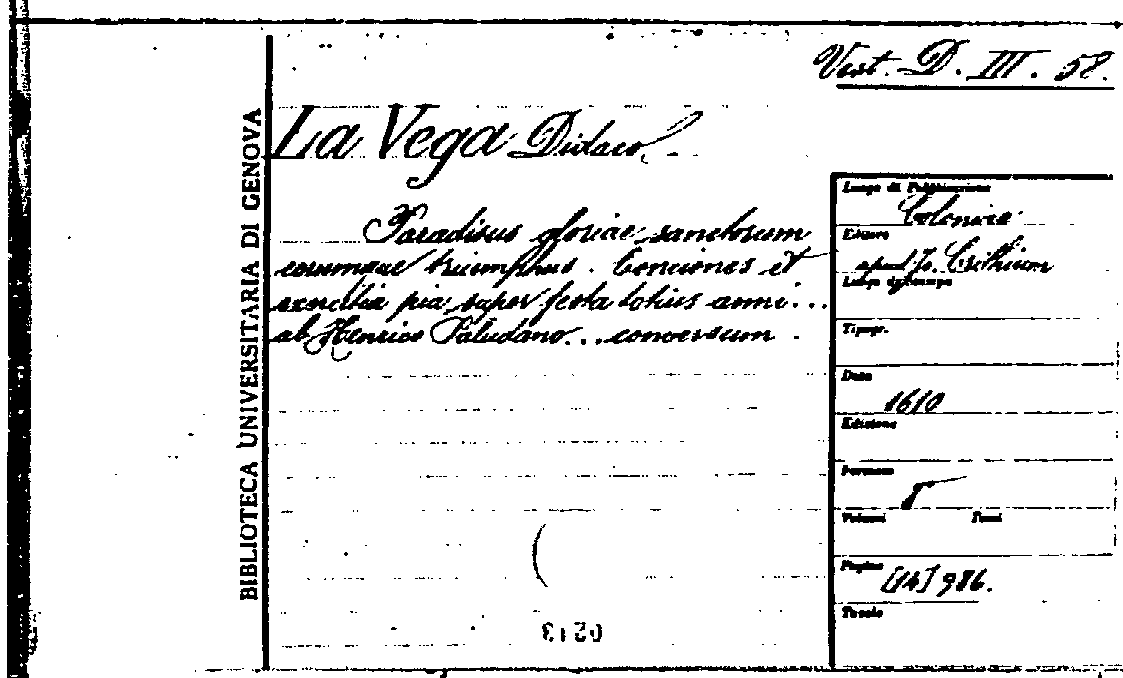 Vist. D. III. 58.
BIBLIOTECA UNIVERSITARIA DI GENOVA
La Vega Didaco
Paradisus gloriae sanctorum
eorumque triumphus. Conciones et
exercitia pia super festa totius anni...
ab Henrico Paludano... conversum.
Luogo di Pubblicazione
Coloniae
Editore
apud Jo. Crithium
Luogo di stampa
Tipogr.
Data
1610
Edizione
Formato
8°
Volumi Tomi
Pagine
[14] 986.
Tavole